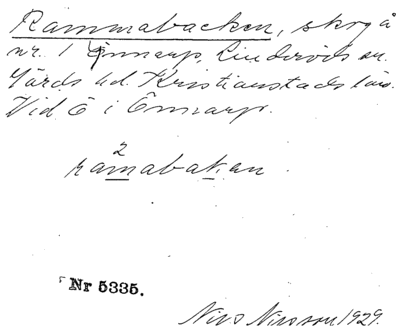 Rammabacken, skog å
nr. 1 Önnarp, Linderöds sn.
Gärds hd. Kristianstads län.
Vid Ö i Önnarp.
2
ramabakan
Nr 5335.
Nils Nilsson 1929.